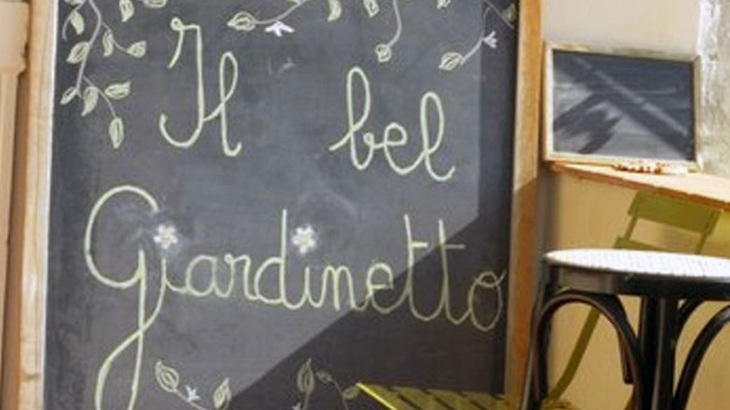 Il bel
Giardinetto